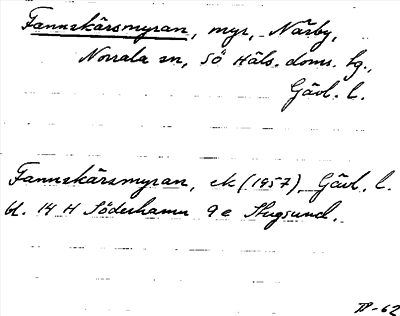 Fannskärsmyran, myr, Närby,
Norrala sn, SÖ Häls. doms. hg.,
Gävl. l.
Fannskärsmyran, ek (1957), Gävl. l.
bl. 14 H Söderhamn 9 e Stugsund.
-62